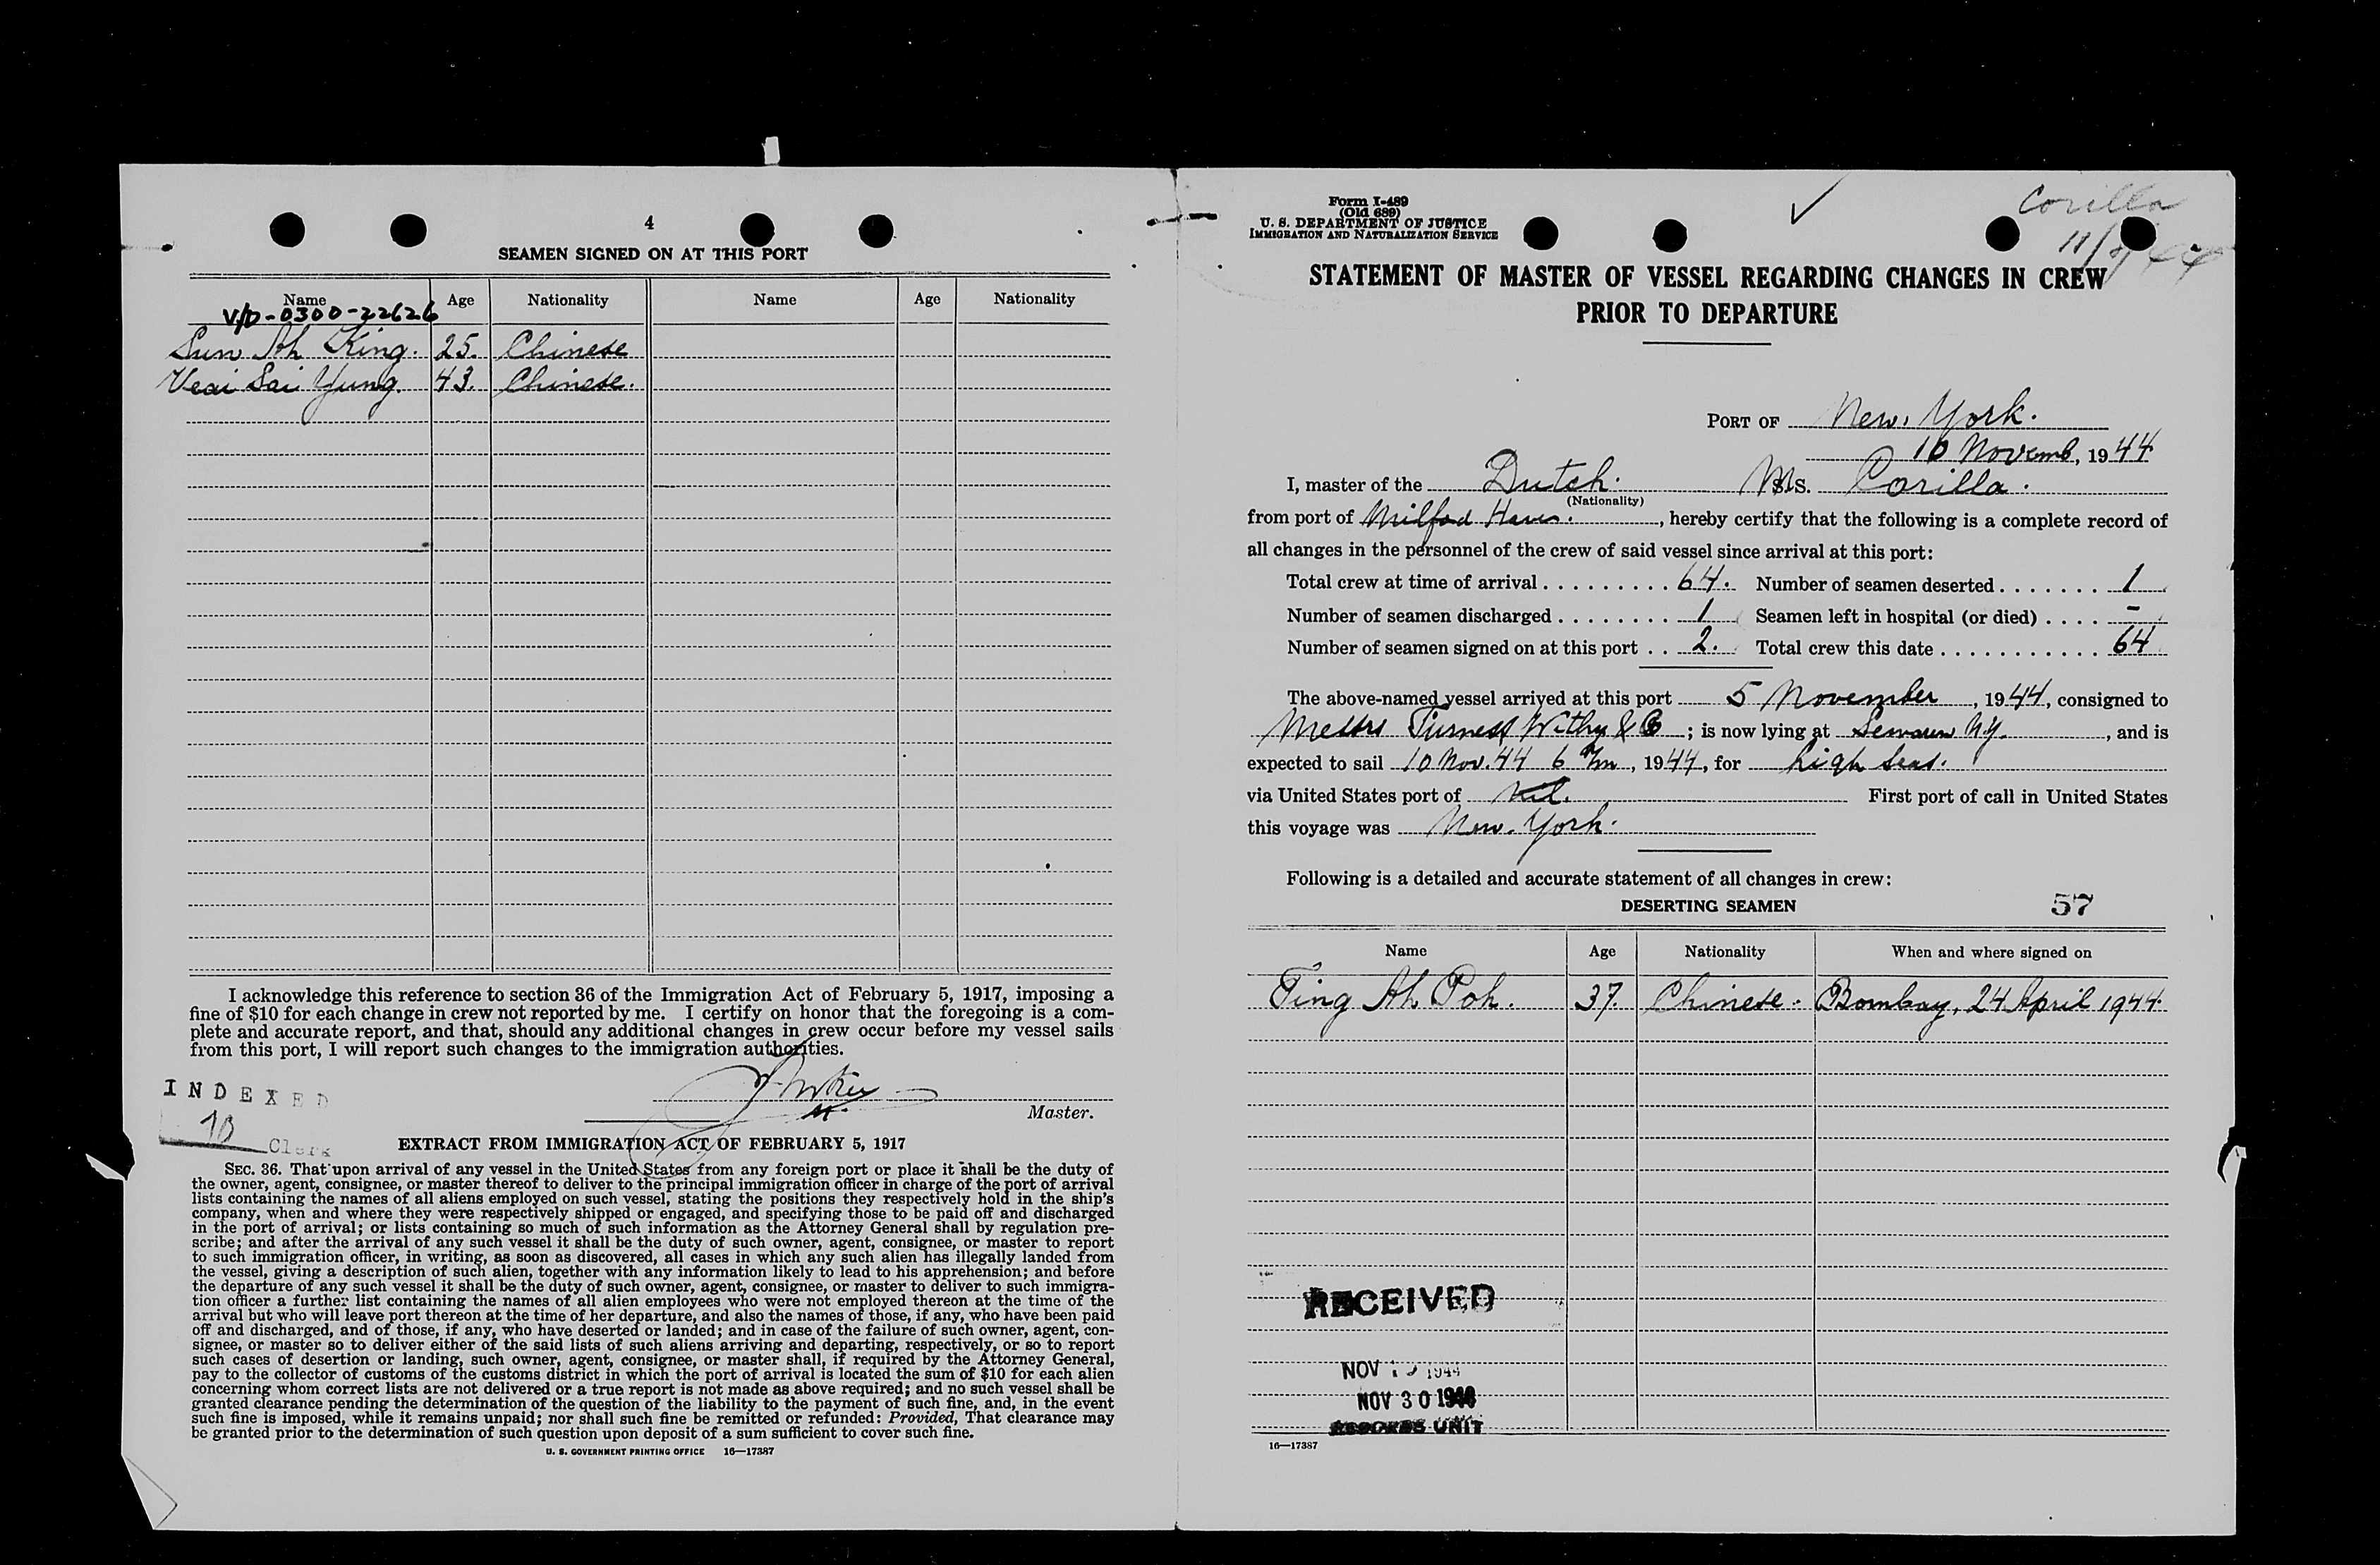 4
SEAMEN SIGNED ON AT THIS PORT
Name Age Nationality Name Age Nationality
V/D-0300-22626
Sun Ah King. 25. Chinese
Veai Sai Yung. 43. Chinese.
I acknowledge this reference to section 36 of the Immigration Act of February 5, 1917, imposing a
fine of $10 for each change in crew not reported by me. I certify on honor that the foregoing is a com-
plete and accurate report, and that, should any additional changes in crew occur before my vessel sails
from this port, I will report such changes to the immigration authorities.
INDEXED
Master.
Clerk
EXTRACT FROM IMMIGRATION ACT OF FEBRUARY 5, 1917
SEC. 36. That upon arrival of any vessel in the United States from any foreign port or place it shall be the duty of
the owner, agent, consignee, or master thereof to deliver to the principal immigration officer in charge of the port of arrival
lists containing the names of all aliens employed on such vessel, stating the positions they respectively hold in the ship's
company, when and where they were respectively shipped or engaged, and specifying those to be paid off and discharged
in the port of arrival; or lists containing so much of such information as the Attorney General shall by regulation pre-
scribe; and after the arrival of any such vessel it shall be the duty of such owner, agent, consignee, or master to report
to such immigration officer, in writing, as soon as discovered, all cases in which any such alien has illegally landed from
the vessel, giving a description of such alien, together with any information likely to lead to his apprehension; and before
the departure of any such vessel it shall be the duty of such owner, agent, consignee, or master to deliver to such immigra-
tion officer a further list containing the names of all alien employees who were not employed thereon at the time of the
arrival but who will leave port thereon at the time of her departure, and also the names of those, if any, who have been paid
off and discharged, and of those, if any, who have deserted or landed; and in case of the failure of such owner, agent, con-
signee, or master so to deliver either of the said lists of such aliens arriving and departing, respectively, or so to report
such cases of desertion or landing, such owner, agent, consignee, or master shall, if required by the Attorney General,
pay to the collector of customs of the customs district in which the port of arrival is located the sum of $10 for each alien
concerning whom correct lists are not delivered or a true report is not made as above required; and no such vessel shall be
granted clearance pending the determination of the question of the liability to the payment of such fine, and, in the event
such fine is imposed, while it remains unpaid; nor shall such fine be remitted or refunded: Provided, That clearance may
be granted prior to the determination of such question upon deposit of a sum sufficient to cover such fine.
U. S. GOVERNMENT PRINTING OFFICE 16—17387
Form I-489
(Old 689)
U. S. DEPARTMENT OF JUSTICE
IMMIGRATION AND NATURALIZATION SERVICE
Corilla
STATEMENT OF MASTER OF VESSEL REGARDING CHANGES IN CREW
PRIOR TO DEPARTURE
PORT OF New. York.
10 Novemb, 1944
I, master of the Dutch. Ms. Corilla.
(Nationality)
from port of Milford Haven., hereby certify that the following is a complete record of
all changes in the personnel of the crew of said vessel since arrival at this port:
Total crew at time of arrival . . . . . . . . . 64. Number of seamen deserted . . . . . . . 1
Number of seamen discharged . . . . . . . . 1 Seamen left in hospital (or died) . . . . -
Number of seamen signed on at this port . . 2. Total crew this date . . . . . . . . . . . . 64
The above-named vessel arrived at this port 5 November, 1944, consigned to
Messrs Furness Withy & Co; is now lying at Sewaren NJ., and is
expected to sail 10 Nov. 44 6, 1944, for high seas.
via United States port of Nil. First port of call in United States
this voyage was New. York.
Following is a detailed and accurate statement of all changes in crew:
DESERTING SEAMEN 57
Name Age Nationality When and where signed on
Ting Ah Poh. 37. Chinese. Bombay, 24 April 1944.
RECEIVED
NOV 1944
NOV 30 1944
RECORDS UNIT
16—17387